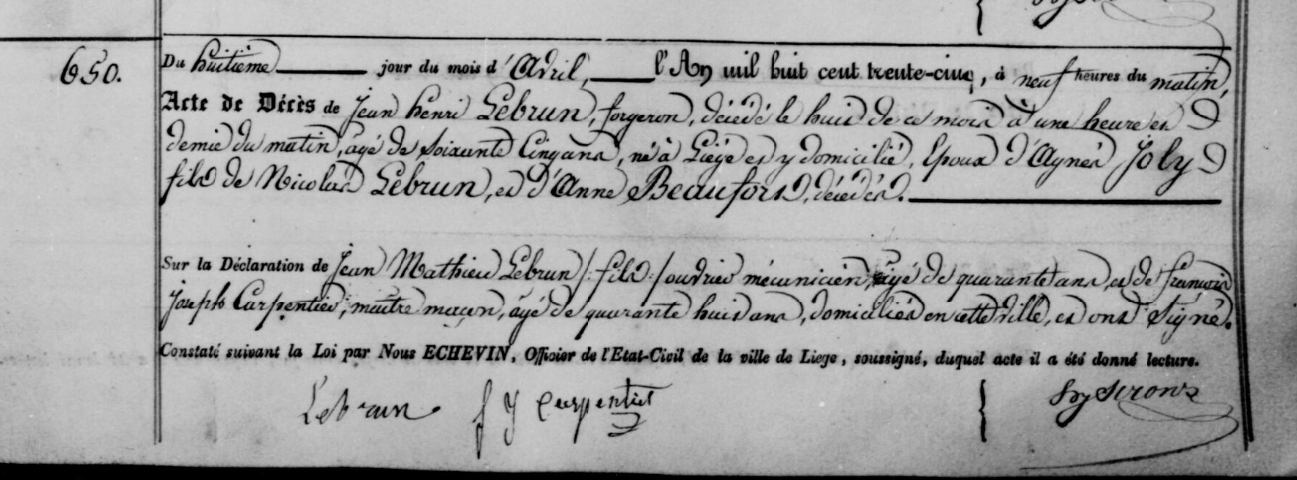 650.
Du huitième jour du mois d'Avril, l'An mil huit cent trente-cinq, à neuf heures du matin,
Acte de Décès de Jean henri Lebrun, forgeron, décédé le huit de ce mois à une heure et
demie du matin, agé de soixante Cinq ans, né à Liége et y domicilié, Epoux d'Agnès Joly
fils de Nicolas Lebrun, et d'Anne Beaufort, décédés.
Sur la Déclaration de Jean Mathieu Lebrun /: fils :/ ouvrier mécanicien, agé de quarante ans, et de françois
Joseph Carpentier, maître maçon, agé de quarante huit ans, domiciliés en cette ville, et ont Signé.
Constaté suivant la Loi par Nous ECHEVIN, Officier de l'Etat-Civil de la ville de Liege, soussigné, duquel acte il a été donné lecture.
Lebrun f J Carpentier